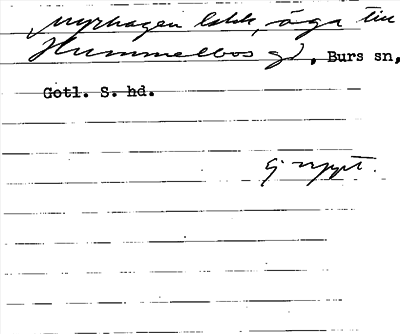 Myrhagen lokk, äga till
Hummelbos gd, Burs sn,
Gotl. S. hd.
Ej uppt.